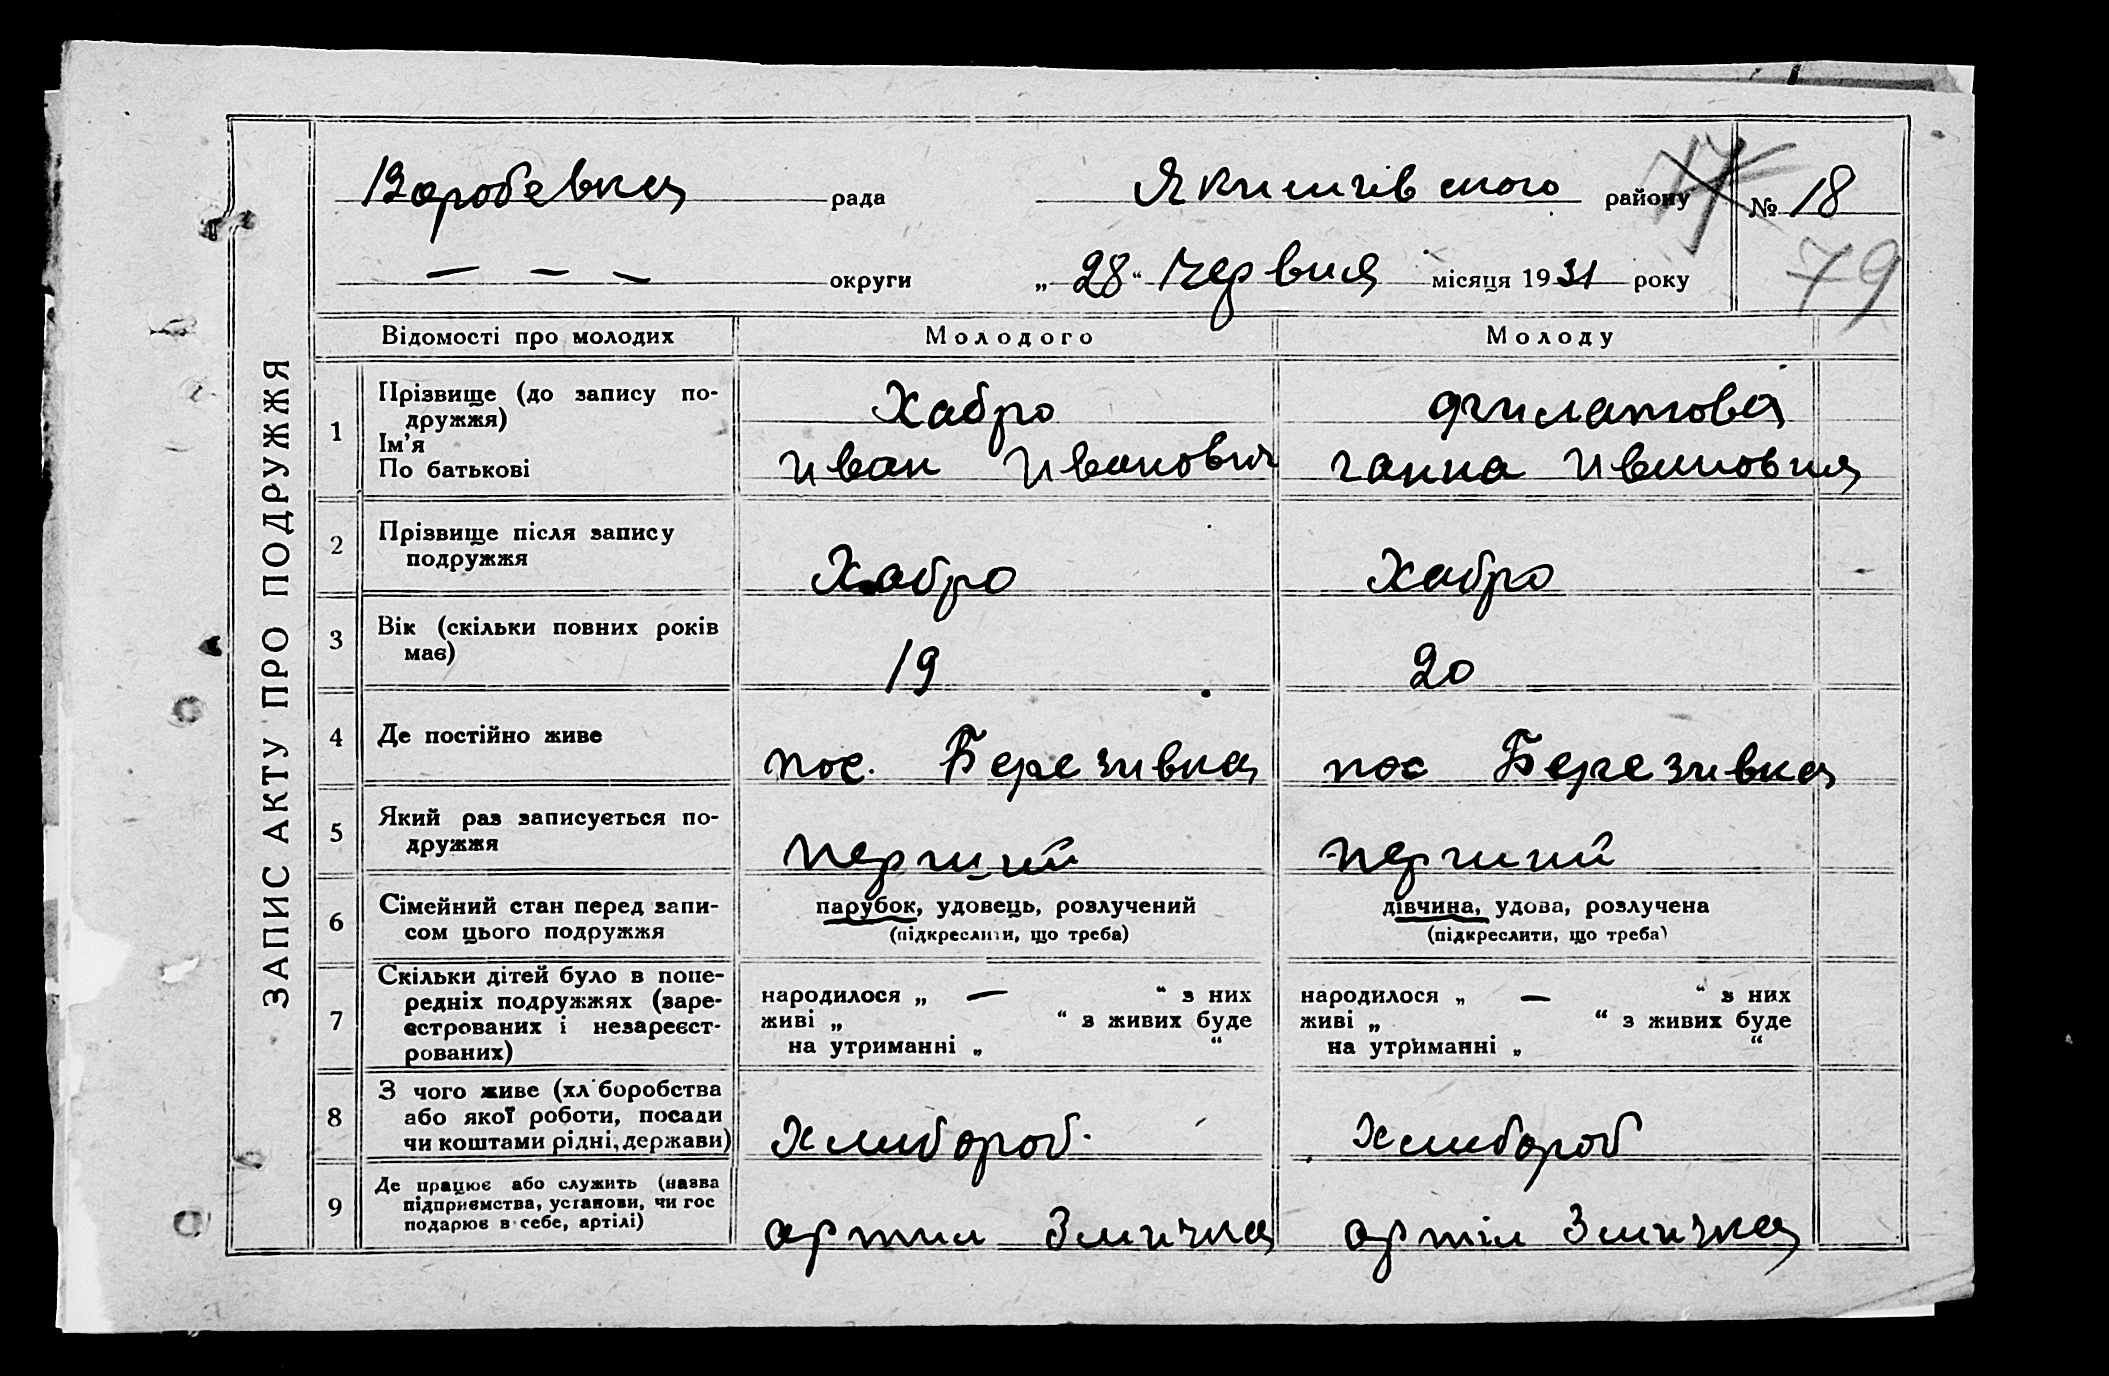 ЗАПИС АКТУ ПРО ПОДРУЖЖЯ
Воробевка рада Якимгівского району № 18
17
79
— — — округи „28“ червня місяця 1931 року
Відомості про молодих Молодого Молоду
1 Прізвище (до запису по-
дружжя)
Ім'я
По батькові
Хабро
Иван Иванович
Филатова
Ганна Ивановня
2 Прізвище після запису
подружжя
Хабро Хабро
3 Вік (скільки повних років
має)
19 20
4 Де постійно живе
пос. Березивка пос Березивка
5 Який раз записується по-
дружжя
перший перший
6 Сімейний стан перед запи-
сом цього подружжя
парубок, удовець, розлучений
(підкреслити, що треба)
дівчина, удова, розлучена
(підкреслити, що треба)
7 Скільки дітей було в попе-
редніх подружжях (заре-
єстрованих і незареєст-
рованих)
народилося „ — “ з них
живі „ “ з живих буде
на утриманні „ “
народилося „ — “ з них
живі „ “ з живих буде
на утриманні „ “
8 З чого живе (хліборобства
або якої роботи, посади
чи коштами рідні, держави)
Хлибороб. Хлибороб
9 Де працює або служить (назва
підприємства, установи, чи гос
подарює в себе, артілі)
артил Змичка артіл Змичка